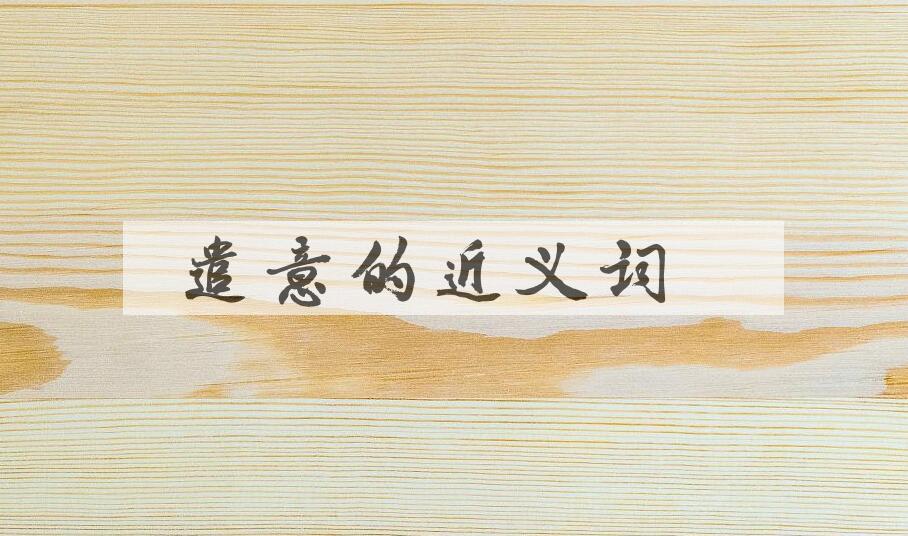 遣意的近义词